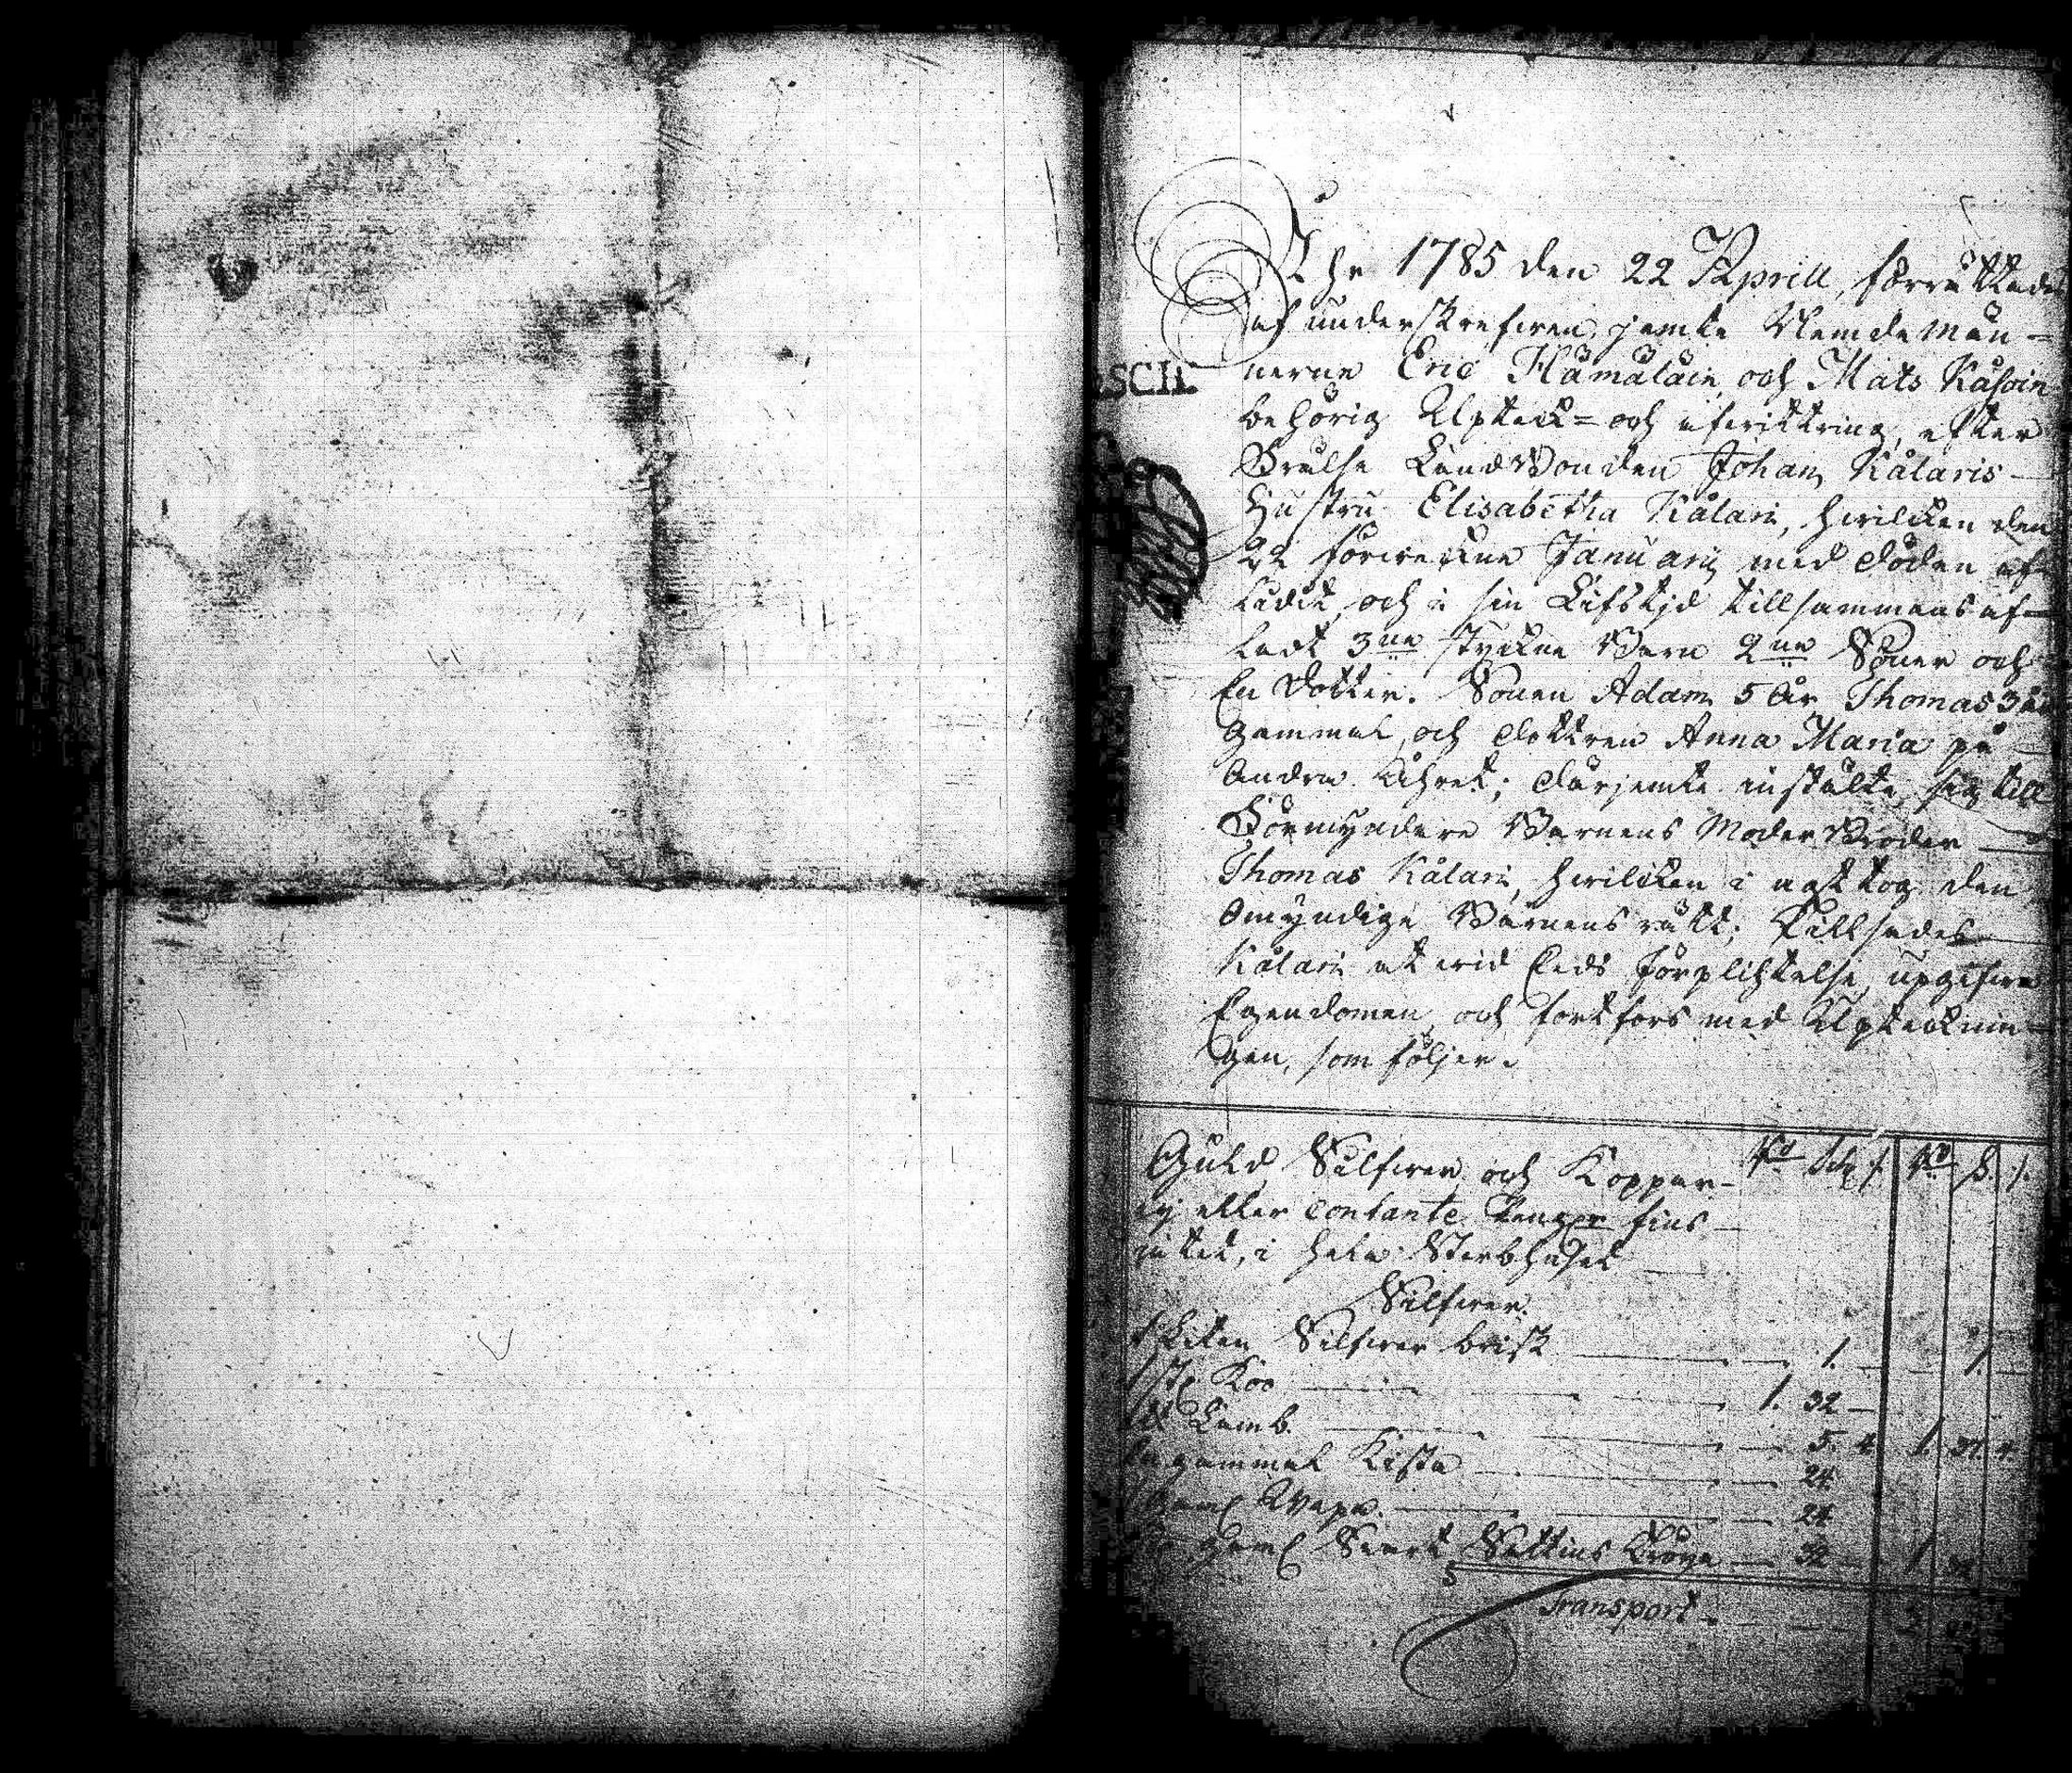 SCH.
Åhr 1785 den 22 Aprill, förrättades
af underskrefven, jemte Nemdemän=
nerne Eric Hämäläin, och Mats Kåsoin
behörig Upteck= och
Frälse Landbonden Johan Kålaris
Hustru Elisabetha Kålari, hvilcken den
22 förvekne Januarij med döden af=
lidit, och i sin Lifstjd tillsammans af=
ladt 3ne stycken Barn 2ne Söner och
En Dotter. Sonen Adam 5 År Thomas 3 år
gammal, och dottren Anna Maria på
Andra Åhret; därjemte instälte sig till
Förmyndere Barnens Moder Broder
Thomas Kålari, hvilcken i agt tog den
Omyndige Barnens rätt; Tillsades
Kålari at vid Eeds förplichtelse, upgifva
Egendomen, och fortfors med Uptecknin=
gen, som följer.
Guld Silfver, och Koppar
ej eller Contante Penger fins
intet, i hela Sterbhuset
Silfver.
1 Liten Silfver brisk 1. 1.
1 st Koo 1. 32
Ett Lamb. 5. 4. 1. 37. 4.
En gammal Kista 24
24
Gaml Svart 32
Transport